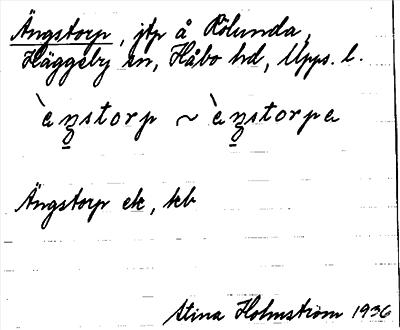 Ängstorp, jtp å Rölunda,
Häggeby sn, Håbo hd, Upps. l.
Ängstorp ek, kb
Stina Holmström 1936